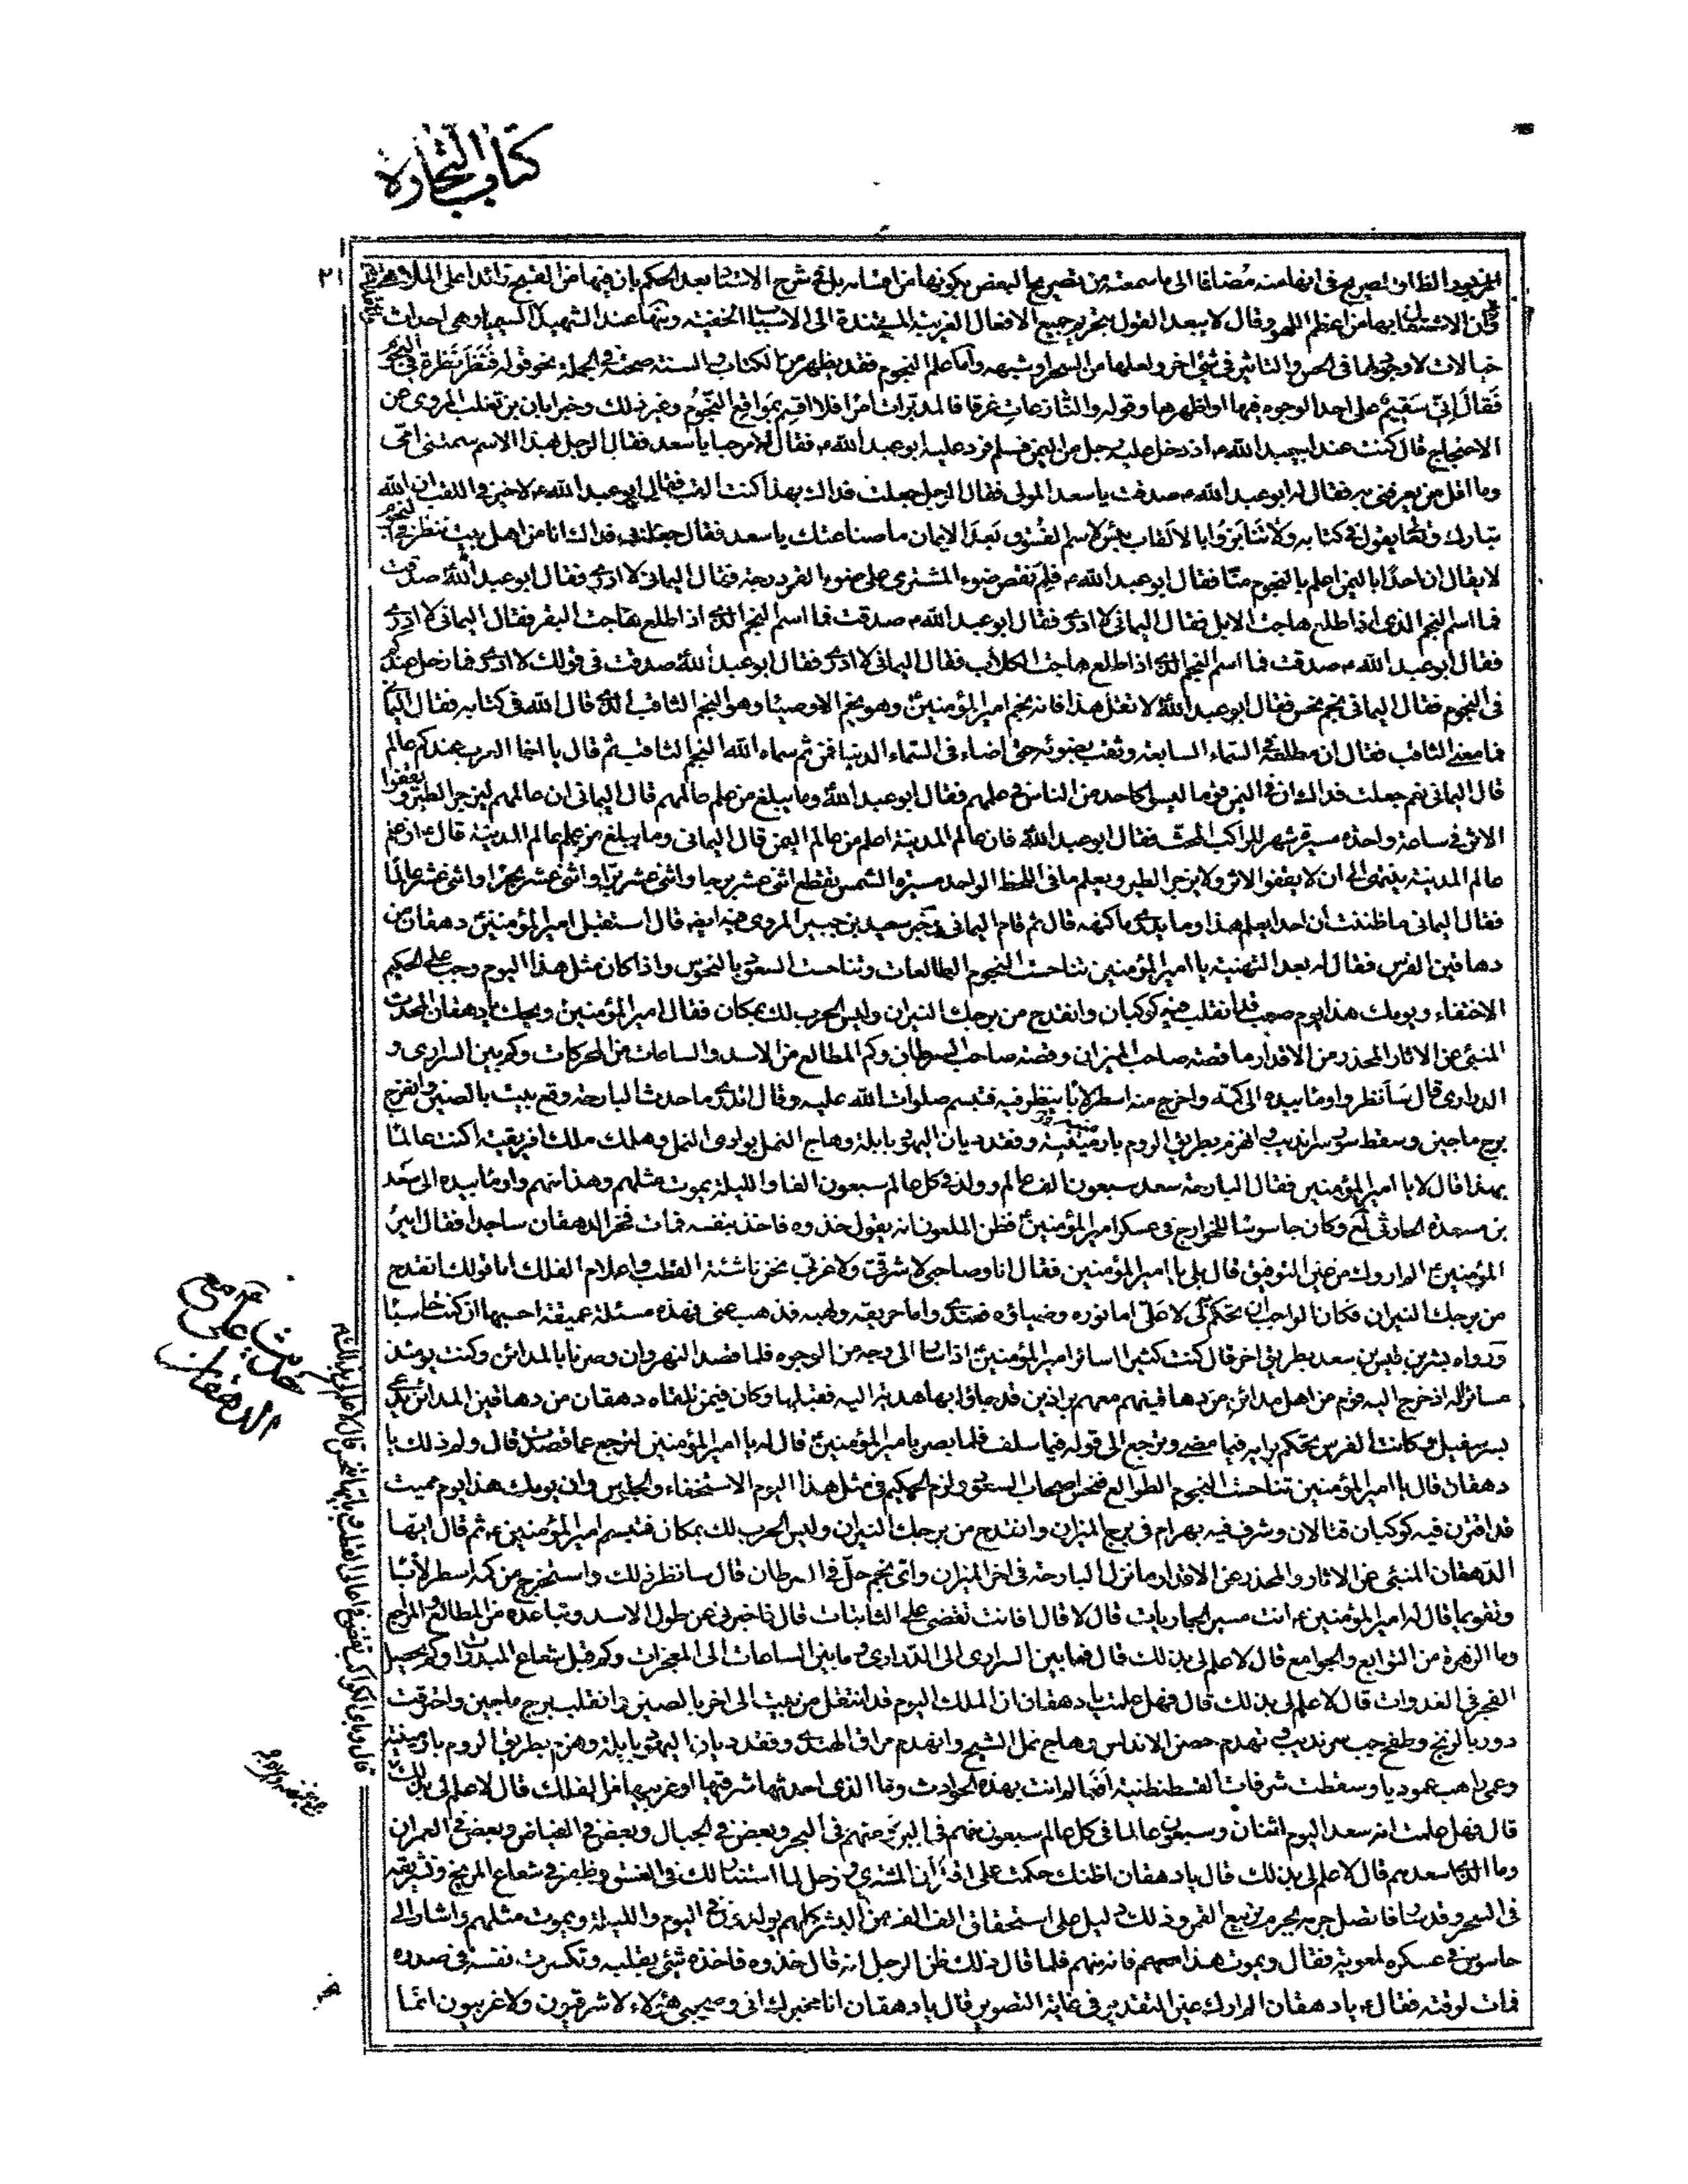 كتاب التجارة
٢١
وان الاشتغال بها من اعظم اللهو وقال لا يبعد القول بتحريم جميع الافعال الغريبة المستندة الى الاسباب الخفية ومنها عند الشهيد السيميا وهى احداث
خيالات لا وجود لها فى الحس والتاثير فى شئ اخر ولعلها من السحر او شبهه واما علم النجوم فقد يظهر من الكتاب والسنة صحته فى الجملة نحو قوله فنظر نظرة فى النجوم
فقال انى سقيم على احد الوجوه فيها او اظهرها وقوله والنازعات غرقا فالمدبرات امرا فلا اقسم بمواقع النجوم وغير ذلك وخبر ابان بن تغلب المروى عن
الاحتجاج قال كنت عند ابيعبد الله ع اذ دخل عليه رجل من اليمن فسلم فرد عليه ابو عبد الله ع فقال له مرحبا يا سعد فقال الرجل بهذا الاسم سمتنى امى
وما اقل من يعرفنى به فقال له ابو عبد الله ع صدقت يا سعد المولى فقال الرجل جعلت فداك بهذا كنت القب فقال ابو عبد الله ع لا خير فى اللقب ان الله
تبارك وتعا يقول فى كتابه ولا تنابزوا بالالقاب بئس الاسم الفسوق بعد الايمان ما صناعتك يا سعد فقال جعلنى فداك انا من اهل بيت ننظر فى النجوم
لا يقال ان احدا باليمن اعلم بالنجوم منا فقال ابو عبد الله ع فلم نقص ضوء المشترى على ضوء القمر درجة فقال اليمانى لا ادرى فقال ابو عبد الله صدقت
فما اسم النجم الذى اذا طلع هاجت الابل فقال اليمانى لا ادرى فقال ابو عبد الله ع صدقت فما اسم النجم الذى اذا طلع هاجت البقر فقال اليمانى لا ادرى
فقال ابو عبد الله ع صدقت فما اسم النجم الذى اذا طلع هاجت الكلاب فقال اليمانى لا ادرى فقال ابو عبد الله صدقت فى قولك لا ادرى فما زحل عندكم
فى النجوم فقال اليمانى نجم نحس فقال ابو عبد الله لا تقل هذا فانه نجم امير المؤمنين وهو نجم الاوصيا وهو النجم الثاقب الذى قال الله فى كتابه فقال اليمانى
فما معنى الثاقب فقال ان مطلعه فى السماء السابعة وثقب بضوئه حتى اضاء فى السماء الدنيا فمن ثم سماه الله النجم الثاقب ثم قال يا اخا العرب عندكم عالم
قال اليمانى نعم جعلت فداك ان فى اليمن قوما ليسوا كاحد من الناس فى علمهم فقال ابو عبد الله وما يبلغ من علم عالمهم قال اليمانى ان عالمهم ليزجر الطير ويقفوا
الاثر فى ساعة واحدة مسيرة شهر للراكب المحث فقال ابو عبد الله فان عالم المدينة اعلم من عالم اليمن قال اليمانى وما يبلغ من علم عالم المدينة قال ع ان علم
عالم المدينة ينتهى الى ان لا يقفوا الاثر ولا يزجر الطير ويعلم ما فى اللحظ الواحد مسيرة الشمس تقطع اثنى عشر برجا واثنى عشر برا واثنى عشر بحرا واثنى عشر عالما
فقال اليمانى ما ظننت ان احدا يعلم هذا وما يدرى ما كنهه قال ثم قام اليمانى وخبر سعيد بن جبير المروى عنه ايضا قال استقبل امير المؤمنين دهقان من
دهاقين الفرس فقال له بعد التهنية يا امير المؤمنين تناحست النجوم الطالعات وتناحست السعود بالنحوس واذا كان مثل هذا اليوم وجب على الحكيم
الاختفاء ويومك هذا يوم صعب قد انقلب فيه كوكبان وانقدح من برجك النيران وليس الحرب لك بمكان فقال امير المؤمنين ويحك يا دهقان
المنبئ عن الاثار المحذر من الاقدار ما قصة صاحب الميزان وقصة صاحب السرطان وكم المطالع من الاسد والساعات من المحركات وكم بين السرارى و
الدرارى قال سانظر واوما بيده الى كمه واخرج منه اسطرلابا ينظر فيه فتبسم صلوات الله عليه وقال اتدرى ما حدث البارحة وقع بيت بالصين وانفرج
برج ماجين وسقط سور سرانديب وانهزم بطريق الروم بارمينية وفقد ديان اليهود بابلة وهاج النمل بوادى النمل وهلك ملك افريقية اكنت عالما
بهذا قال لا يا امير المؤمنين فقال البارحة سعد سبعون الف عالم وولد فى كل عالم سبعون الفا والليلة يموت مثلهم وهذا منهم واوما بيده الى سعد
بن مسعدة الحارثى لع وكان جاسوسا للخوارج فى عسكر امير المؤمنين فظن الملعون انه يقول خذوه فاخذ بنفسه فمات فخر الدهقان ساجدا فقال امير
المؤمنين الم اروك من عين التوفيق قال بلى يا امير المؤمنين فقال انا وصاحبى لا شرقى ولا غربى نحن ناشئة القطب واعلام الفلك اما قولك انقدح
من برجك النيران فكان الواجب ان تحكم لى لا على اما نوره وضياؤه فعندى واما حريقه ولهبه فذهب عنى فهذه مسئلة عميقة احسبها ان كنت حاسبا
ورواه بشر بن قيس بن سعد بطريق اخر قال كنت كثيرا اساير امير المؤمنين اذا سار الى وجه من الوجوه فلما قصد النهروان وصرنا بالمدائن وكنت يومئذ
مسائرا له اذ خرج اليه قوم من اهل مدائن من دهاقينهم معهم براذين قد جاؤا بها هدية اليه فقبلها وكان فيمن تلقاه دهقان من دهاقين المدائن يدعى
وكانت الفرس تحكم برايه فيما مضى وترجع الى قوله فيما سلف فلما بصر بامير المؤمنين قال له يا امير المؤمنين لترجع عما قصدت قال ولم ذلك يا
دهقان قال يا امير المؤمنين تناحست النجوم الطوالع فنحس اصحاب السعود ولزم الحكيم فى مثل هذا اليوم الاستخفاء والجلوس وان يومك هذا يوم مميت
قد اقترن فيه كوكبان قتالان وشرف فيه بهرام فى برج الميزان وانقدح من برجك النيران وليس الحرب لك بمكان فتبسم امير المؤمنين ع ثم قال ايها
الدهقان المنبئ عن الاثار والمحذر عن الاقدار ما نزل البارحة فى اخر الميزان واى نجم حل فى السرطان قال سانظر ذلك واستخرج من كمه اسطرلابا
وتقويما قال له امير المؤمنين ع انت مسير الجاريات قال لا قال فانت تقضى على الثابتات قال لا قال فاخبرنى عن طول الاسد وتباعده من المطالع والمراجع
وما الزهرة من التوابع والجوامع قال لا علم لى بذلك قال فما بين السرارى الى الدرارى وما بين الساعات الى المعجزات وكم قدر شعاع المبدرات وكم تحصيل
الفجر فى الغدوات قال لا علم لى بذلك قال فهل علمت يا دهقان ان الملك اليوم قد انتقل من بيت الى اخر بالصين وانقلب برج ماجين واحترقت
دور بالزنج وطفح جب سرنديب وتهدم حصن الاندلس وهاج نمل الشيح وانهدم مراق الهندى وفقد ديان اليهود بابلة وهزم بطريق الروم بارمينية
وعمى راهب عموديا وسقطت شرفات القسطنطنية افعالم انت بهذه الحوادث وما الذى احدثها شرقيها او غربيها من الفلك قال لا علم لى بذلك
قال فهل علمت انه سعد اليوم اثنان وسبعون عالما فى كل عالم سبعون منهم فى البر ومنهم فى البحر وبعض فى الجبال وبعض فى الغياض وبعض فى العمران
وما الذى اسعدهم قال لا علم لى بذلك قال يا دهقان اظنك حكمت على اقتران المشترى وزحل لما استنارا لك فى الغسق وظهر فى شعاع المريخ وتشريقه
فى السحر وقد سار فاتصل جرمه بجرم تربيع القمر وذلك دليل على استحقاق الف الف من البشر كلهم يولدون اليوم والليلة ويموت مثلهم واشار الى
جاسوس فى عسكره لمعوية فقال ويموت هذا فانه منهم فلما قال ذلك ظن الرجل انه قال خذوه فاخذه شئ بقلبه وتكسرت نفسه فى صدره
فمات لوقته فقال ع يا دهقان الم ارك عين التقدير فى غاية التصوير قال يا دهقان انا مخبرك انى وصحبى هؤلاء لا شرقيون ولا غربيون انما
حديث على
الدهقان